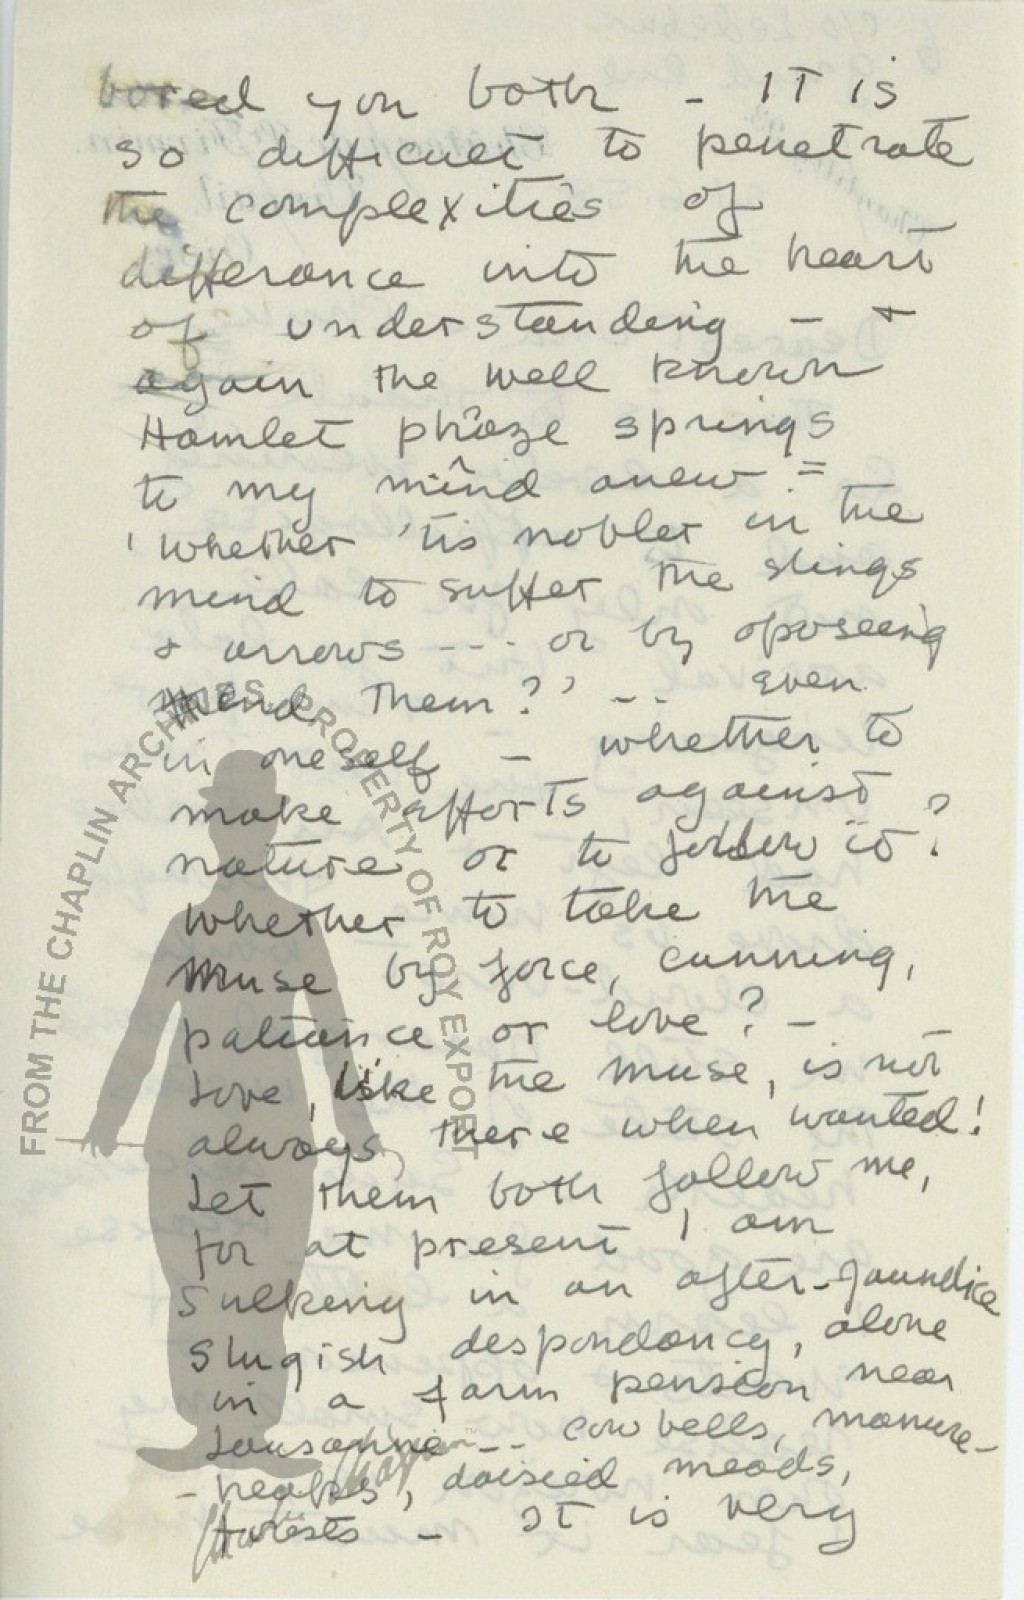 bored you both - IT is
so difficult to penetrate
the complexities of
difference into the heart
of understanding - +
again the well known
Hamlet phraze springs
to my mind anew =
'whether 'tis nobler in the
mind to suffer the slings
+ arrows --- or by oposeing
end them?' -.. even
in oneself - whether to
make efforts against
nature or to follow it?
whether to take the
Muse by force, cunning,
patience or love? -
Love, like the muse, is not
always there when wanted!
Let them both follow me,
for at present I am
sulking in an after-jaundice
slugish despondancy, alone
in a farm pension near
Lausanne -- cow bells, manure-
- heaps, daisied meads,
forests - It is very
FROM THE CHAPLIN ARCHIVES. PROPERTY OF ROY EXPORT